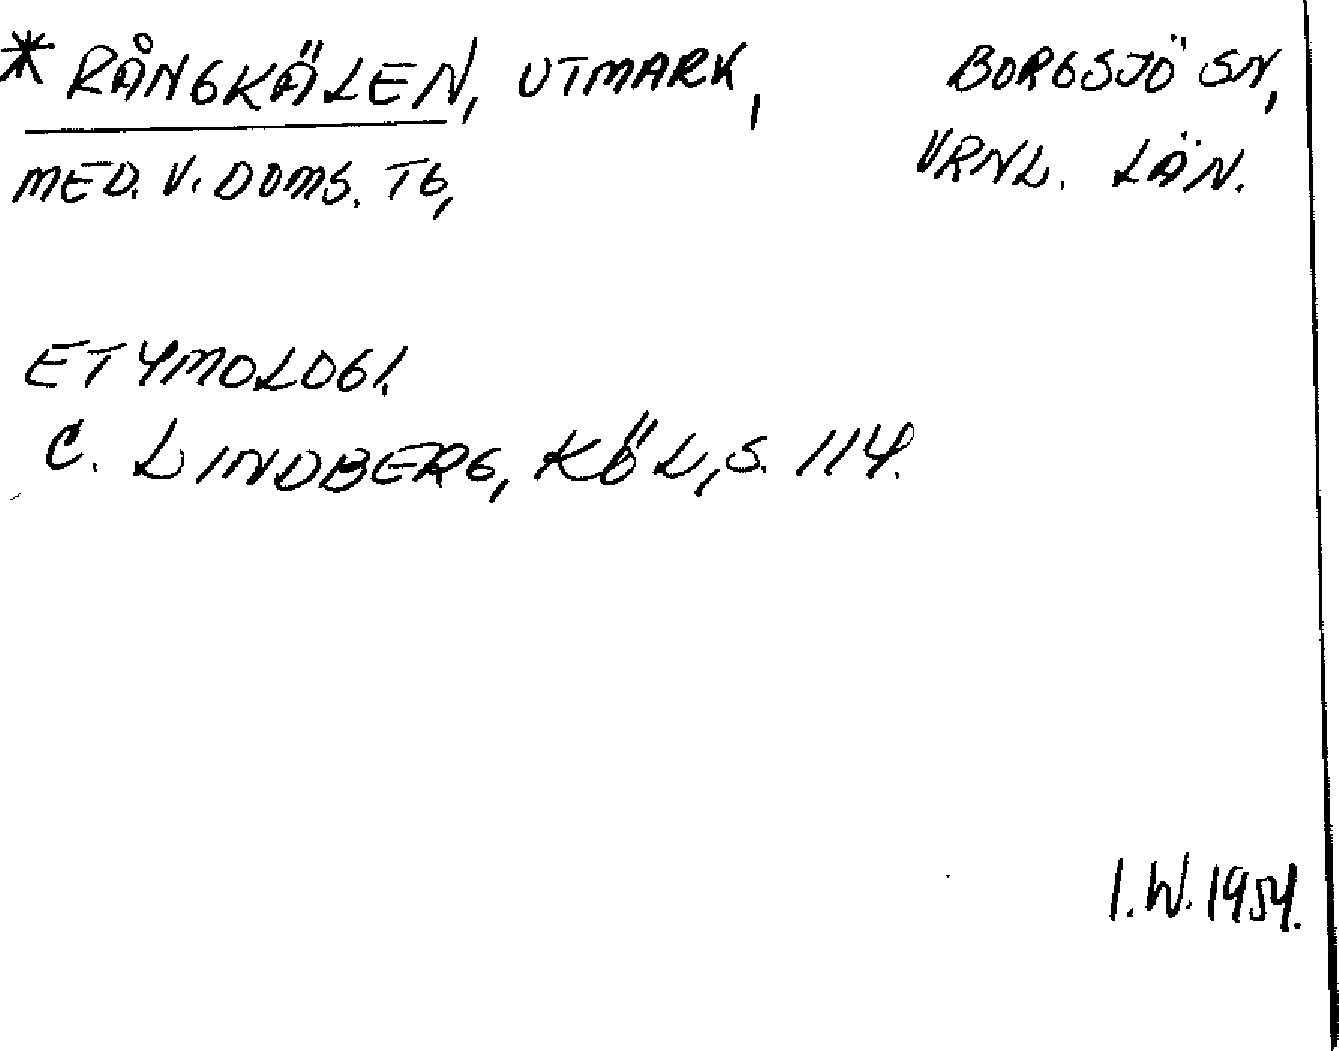 * RÅNGKÄLEN, UTMARK, BORGSJÖ SN,
MED. V. DOMS. TG, VRNL. LÄN.
ETYMOLOGI.
C. LINDBERG, KÖL, S. 114.
I.W. 1954.